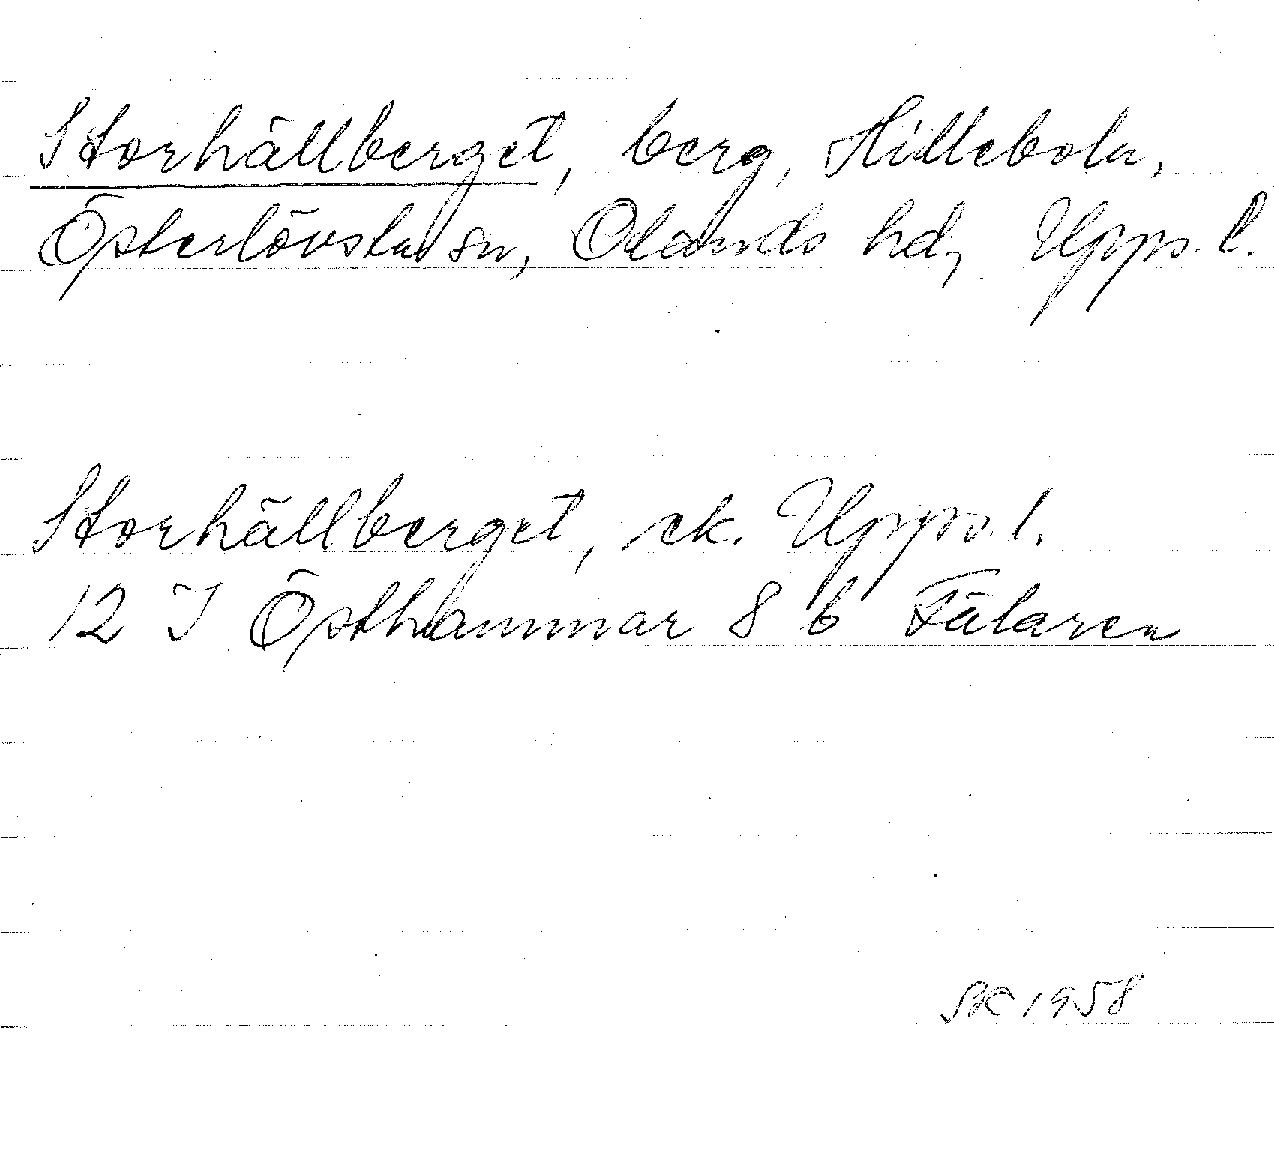 Storhällberget, berg, Hillebola,
Österlövsta sn, Olands hd, Upps. l.
Storhällberget, ek. Upps. l.
12 I Östhammar 8 b Fälaren
SK 1958